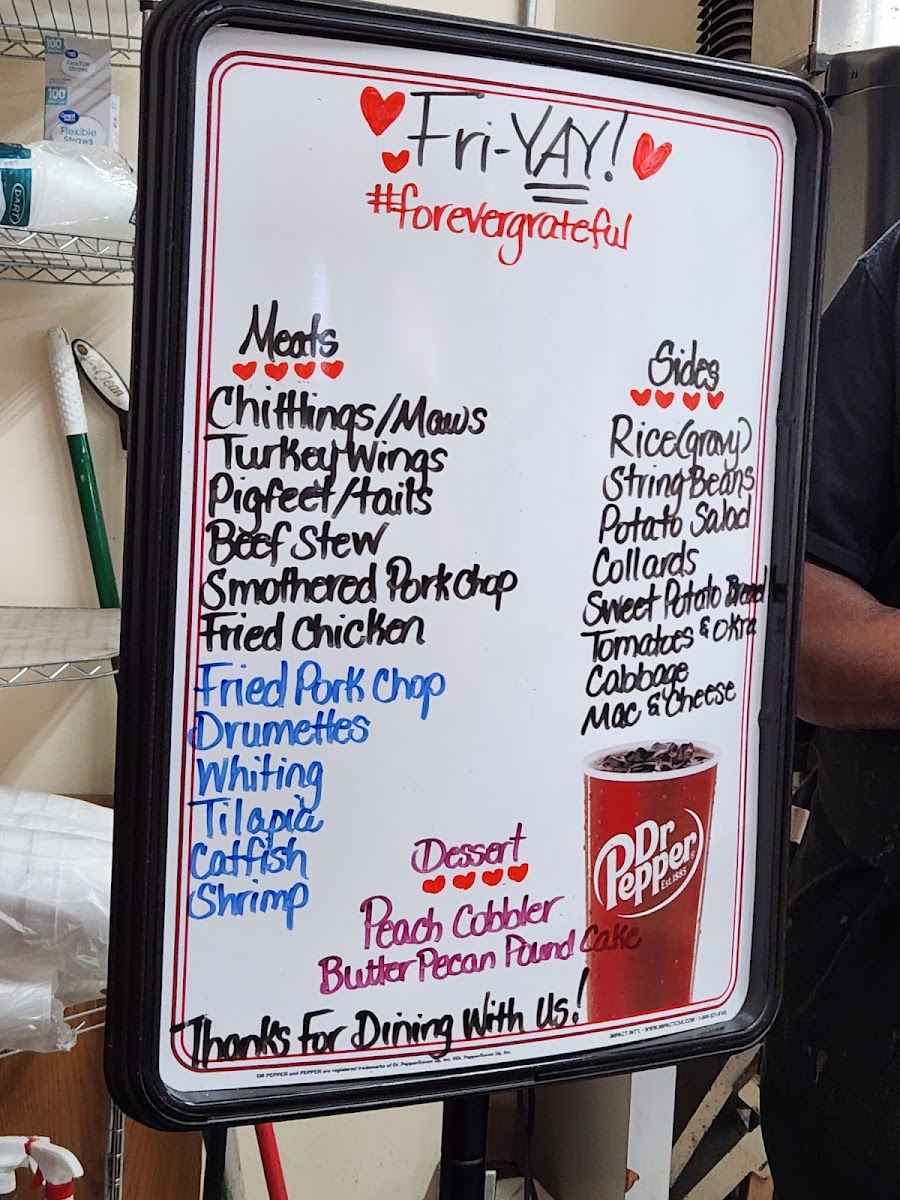 Fri-YAY!
#forevergrateful
Meats
Chitttlings/Maws
Turkey Wings
Pigfeet/tails
Beef Stew
Smothered Pork chop
Fried Chicken
Fried Pork Chop
Drumettes
Whiting
Tilapia
Catfish
Shrimp
Sides
Rice(gravy)
String Beans
Potato Salad
Collards
Sweet Potato Bread
Tomatoes & Okra
Cabbage
Mac & Cheese
Dr
Pepper
Est. 1885
Dessert
Peach Cobbler
Butter Pecan Pound Cake
Thanks For Dining With Us!
DR PEPPER and PEPPER are registered trademarks of Dr. Pepper/Seven Up, Inc.
100
Flexible
Straws
100
Great Value
Flexible
Straws
DART
Clean